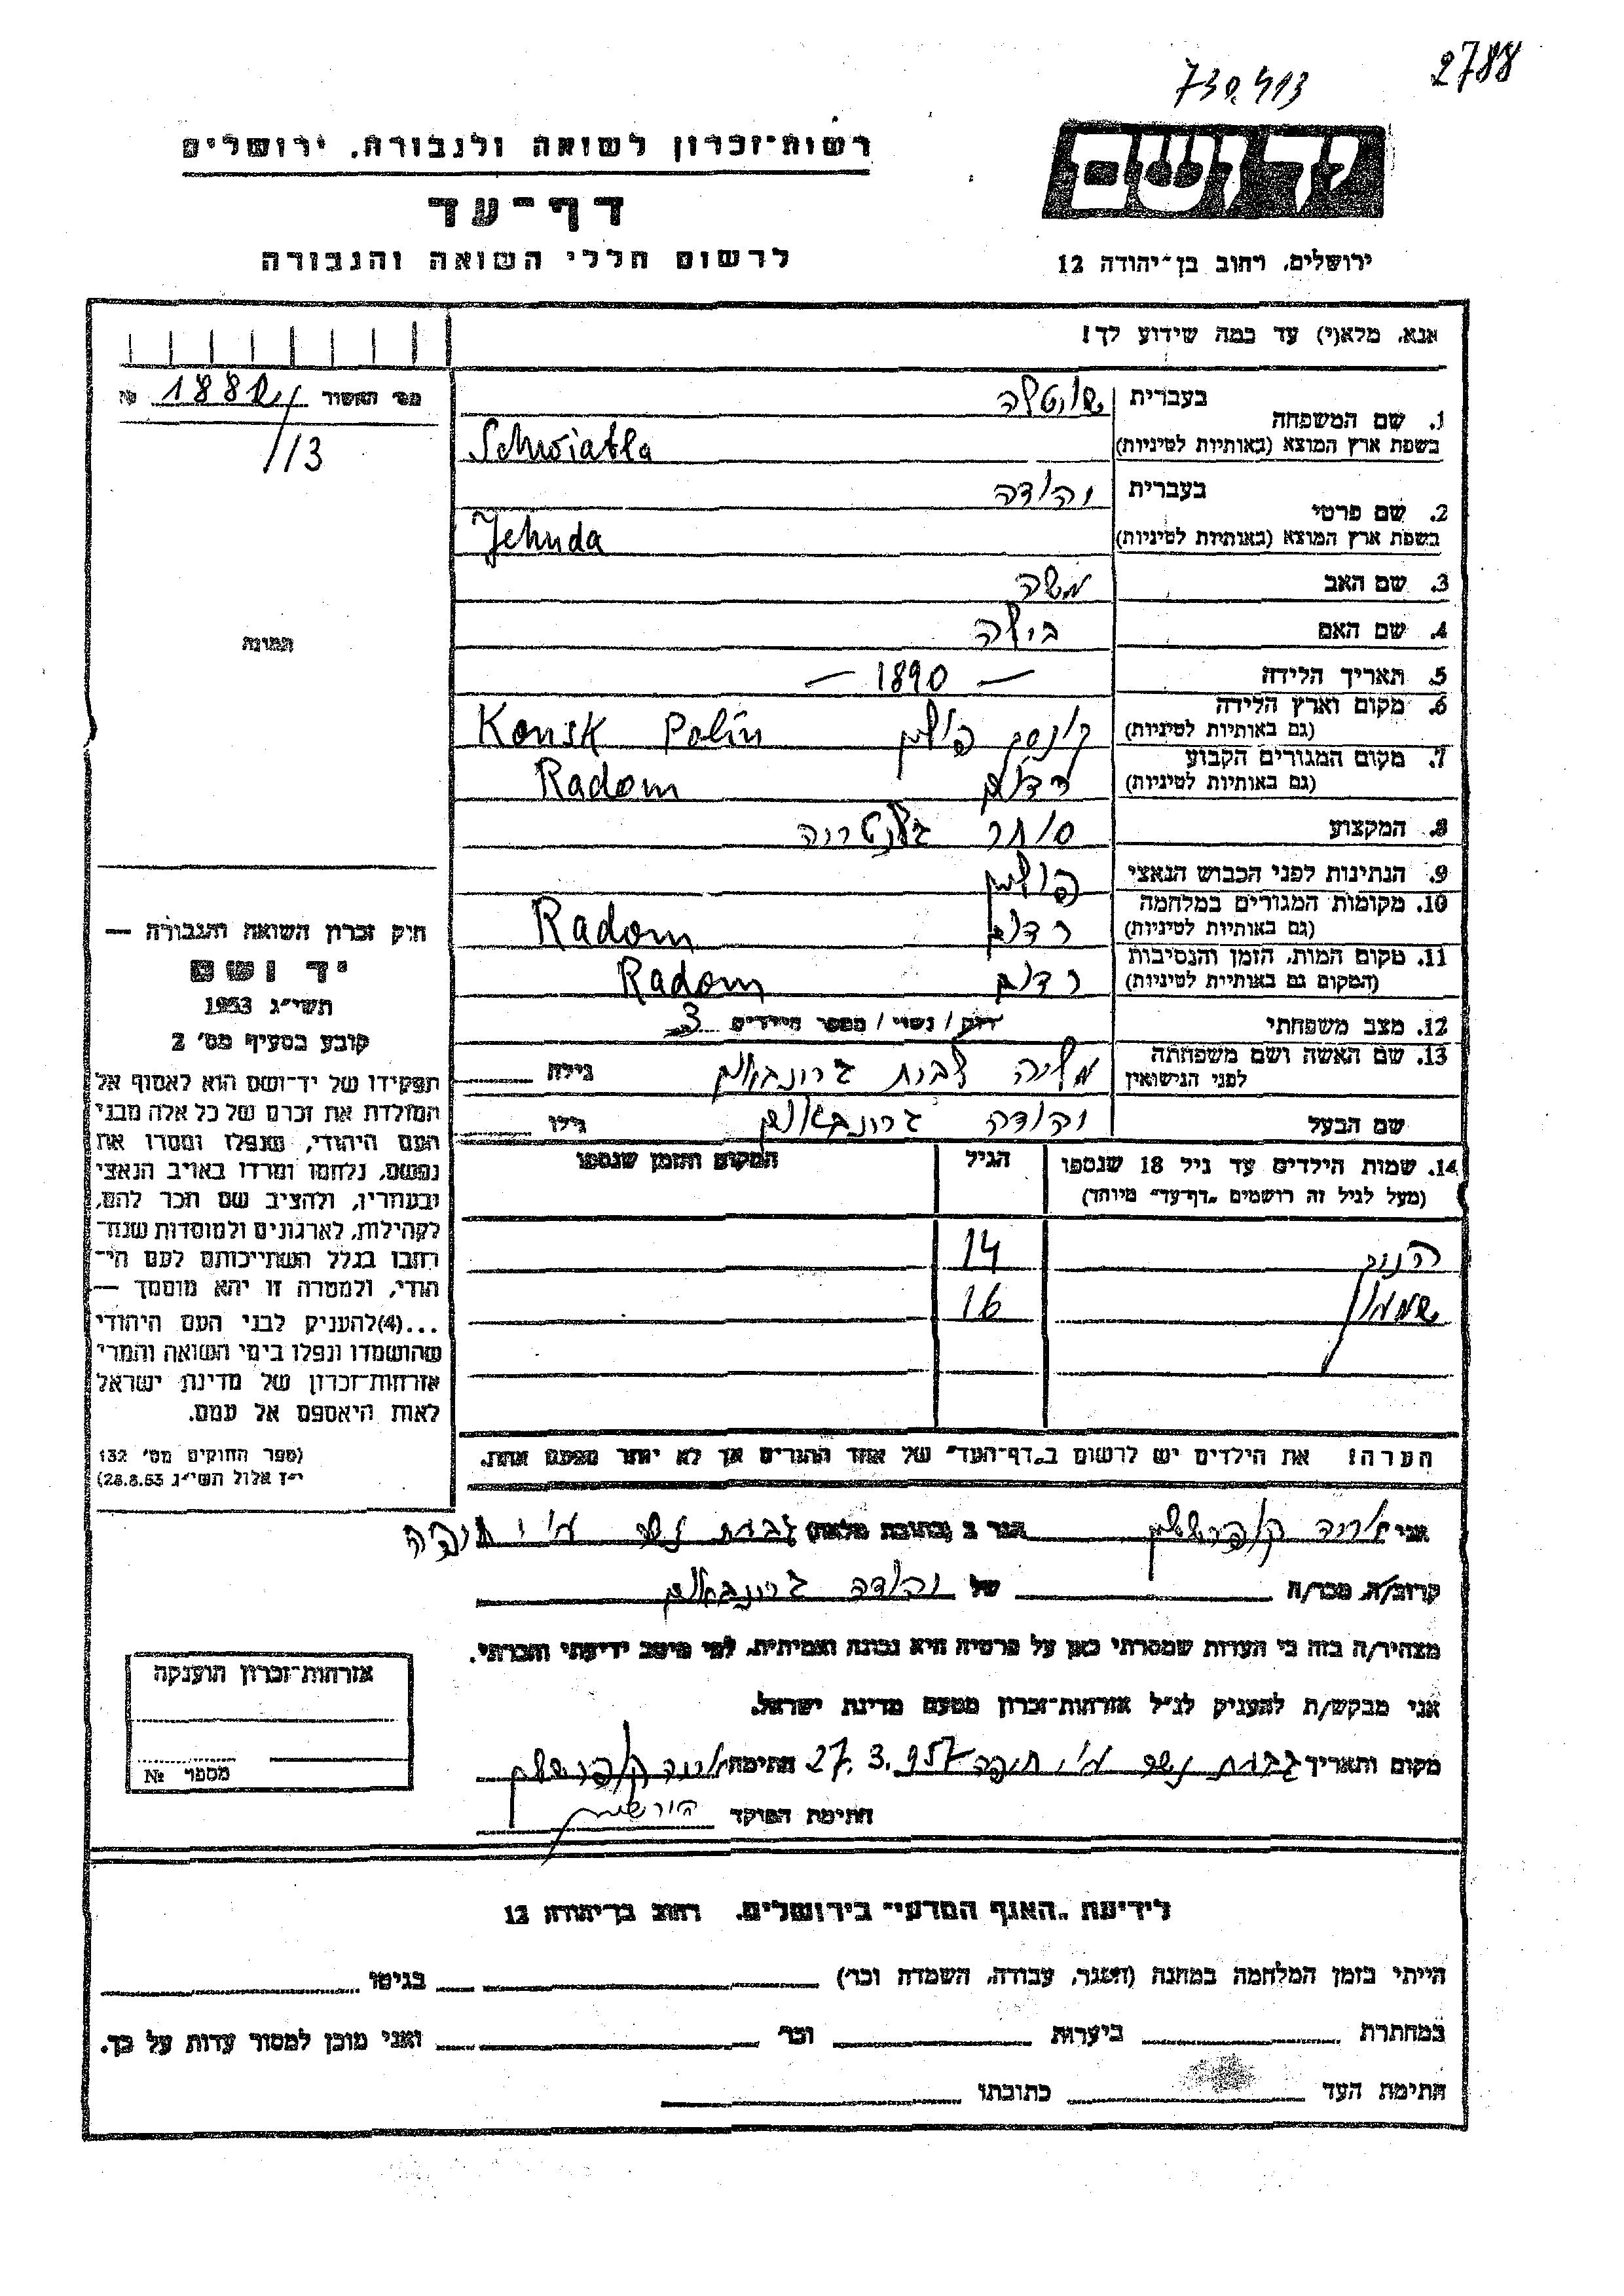 2788
730.413
יד ושם
רשות־זכרון לשואה ולגבורה. ירושלים
דף־עד
לרשום חללי השואה והגבורה
ירושלים, רחוב בן־יהודה 12
אנא, מלא(י) עד כמה שידוע לך!
1. שם המשפחה בעברית
בשפת ארץ המוצא (באותיות לטיניות) Schwiatla
2. שם פרטי בעברית יהודה
בשפת ארץ המוצא (באותיות לטיניות) Jehuda
3. שם האב משה
4. שם האם בילה
5. תאריך הלידה — 1890 —
6. מקום וארץ הלידה (גם באותיות לטיניות) קונסק פולין Konsk Polin
7. מקום המגורים הקבוע (גם באותיות לטיניות) רדום Radom
8. המקצוע סוחר גלנטריה
9. הנתינות לפני הכבוש הנאצי פולין
10. מקומות המגורים במלחמה (גם באותיות לטיניות) רדום Radom
11. מקום המות, הזמן והנסיבות (המקום גם באותיות לטיניות) רדום Radom
12. מצב משפחתי רווק / נשוי / מספר הילדים 3
13. שם האשה ושם משפחתה לפני הנישואין לבית גרינבאום גילה
שם הבעל יהודה גרינבאום גילו
14. שמות הילדים עד גיל 18 שנספו הגיל המקום והזמן שנספו
(מעל לגיל זה רושמים „דף־עד" מיוחד)
חנוך 14
שמעון 16
הערה! את הילדים יש לרשום ב„דף־העד" של אחד ההורים אך לא יותר מפעם אחת.
מס' האשור № 1882/113
תמונה
חוק זכרון השואה והגבורה —
יד ושם
תשי״ג 1953
קובע בסעיף מס' 2
תפקידו של יד־ושם הוא לאסוף אל
המולדת את זכרם של כל אלה מבני
העם היהודי, שנפלו ומסרו את
נפשם, נלחמו ומרדו באויב הנאצי
ובעוזריו, ולהציב שם וזכר להם,
לקהילות, לארגונים ולמוסדות שנח־
רבו בגלל השתייכותם לעם הי־
הודי, ולמטרה זו יהא מוסמך —
...(4)להעניק לבני העם היהודי
שהושמדו ונפלו בימי השואה והמרי
אזרחות־זכרון של מדינת ישראל
לאות היאספם אל עמם.
(ספר החוקים מס' 132
י״ז אלול תשי״ג 28.8.53)
אני קופרשטין הגר ב (כתובת מלאה) גבעת נשר ע״י חיפה
קרוב/ה, מכר/ה של יהודה גרינבאום
מצהיר/ה בזה כי העדות שמסרתי כאן על פרטיה היא נכונה ואמיתית, לפי מיטב ידיעתי והכרתי.
אני מבקש/ת להעניק לנ״ל אזרחות־זכרון מטעם מדינת ישראל.
מקום ותאריך גבעת נשר ע״י חיפה 27.3.957 חתימה קופרשטין
חתימת הפוקד
אזרחות־זכרון הוענקה
מספר №
לידיעת „האגף המדעי" בירושלים. רחוב בן־יהודה 12
הייתי בזמן המלחמה במחנה (הסגר, עבודה, השמדה וכו') בגיטו
במחתרת ביערות וכו' ואני מוכן למסור עדות על כך.
חתימת העד כתובתו